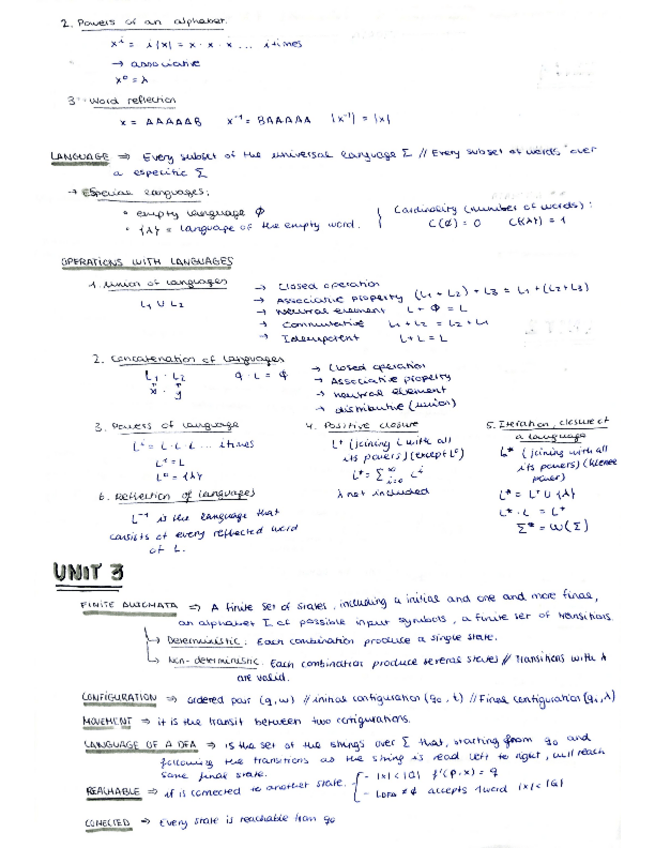 2. Powers of an alphabet.
x^i = i|x| = x · x · x ... i times
→ associative
x^0 = λ
3. Word reflection
x = AAAAAB x^-1 = BAAAAA |x^-1| = |x|
LANGUAGE ⇒ Every subset of the universal language Σ // Every subset of words over
a especific Σ
→ Especial languages:
• empty language ∅
• {λ} = language of the empty word.
Cardinality (number of words):
C(∅) = 0 C({λ}) = 1
OPERATIONS WITH LANGUAGES
1. Union of languages
L1 ∪ L2
→ Closed operation
→ Associative property (L1 + L2) + L3 = L1 + (L2 + L3)
→ Neutral element L + ∅ = L
→ Commutative L1 + L2 = L2 + L1
→ Idempotent L + L = L
2. Concatenation of languages
L1 · L2 ∅ · L = ∅
x y
→ Closed operation
→ Associative property
→ neutral element
→ distributive (union)
3. Powers of language
L^i = L · L · L ... i times
L^1 = L
L^0 = {λ}
4. Positive closure
L^+ (joining L with all
its powers) (except L^0)
L^+ = Σ^∞_{i=0} L^i
λ not included
5. Iteration, closure of
a language
L* (joining with all
its powers) (kleene
L* = L^+ ∪ {λ}
L* · L = L^+
Σ* = W(Σ)
6. Reflection of languages
L^-1 is the language that
consists of every reflected word
of L.
UNIT 3
FINITE AUTOMATA ⇒ A finite set of states, including a initial and one and more final,
an alphabet Σ of possible input symbols, a finite set of transitions.
↳ Deterministic: Each combination produce a single state.
↳ Non-deterministic: Each combination produce several states // Transitions with λ
are valid.
CONFIGURATION ⇒ ordered pair (q,w) // initial configuration (q0, t) // Final configuration (q1, λ)
MOVEMENT ⇒ it is the transit between two configurations.
LANGUAGE OF A DFA ⇒ is the set of the strings over Σ that, starting from q0 and
following the transitions as the string is read left to right, will reach
some final state.
REACHABLE ⇒ if is conected to another state.
- |x| < |Q| f'(p,x) = q
- ≠ ∅ accepts 1 word |x| < |Q|
CONECTED ⇒ Every state is reachable from q0